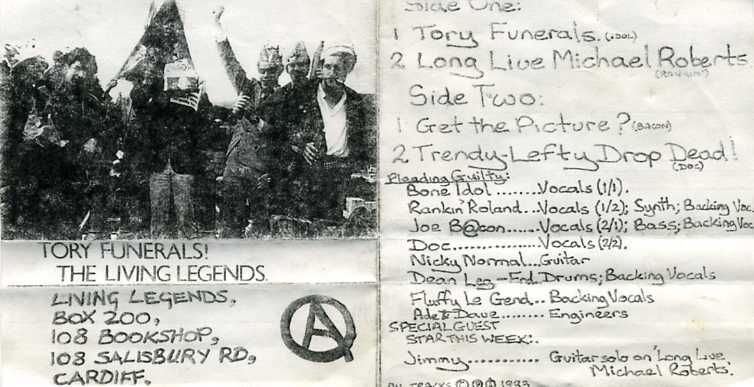 TORY FUNERALS!
THE LIVING LEGENDS.
LIVING LEGENDS,
BOX 200,
108 BOOKSHOP,
108 SALISBURY RD,
CARDIFF.
A
Side One:
1 Tory Funerals. (IDOL)
2 Long Live Michael Roberts
Side Two:
1 Get the Picture? (BACON)
2 Trendy Lefty Drop Dead!
(DOC)
Pleading Guilty:
Bone Idol.......Vocals (1/1).
Rankin' Roland...Vocals (1/2); Synth; Backing Voc.
Joe B@con......Vocals (2/1); Bass; Backing Voc
Doc...............Vocals (2/2).
Nicky Normal..Guitar
Dean Leg-End Drums; Backing Vocals
Fluffy Le Gend...Backing Vocals
Ade & Dave........ Engineers
SPECIAL GUEST
STAR THIS WEEK:
Jimmy........... Guitar solo on 'Long Live
Michael Roberts'.
ALL TRACKS